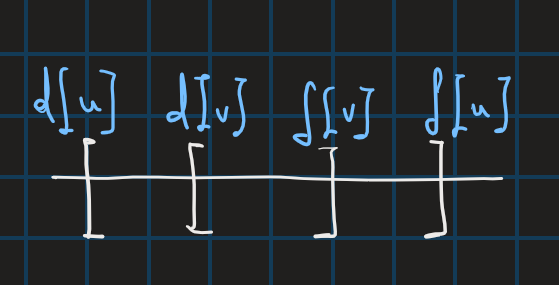 d[u] d[v] f[v] f[u]